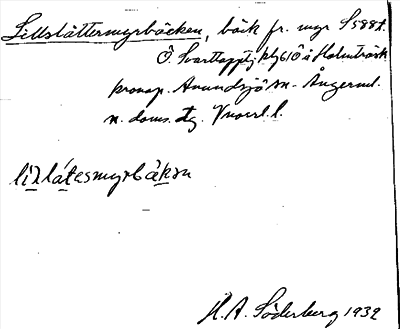 Lillslåttermyrbäcken, bäck fr. myr S 588 t.
Ö. Svarttappstj. på 610 å Holmträsk
kronop. Anundsjö sn. Ångerml.
n. doms. dg. Vnorrl. l.
lizlátesmyrbäkən
H. A. Söderberg 1932